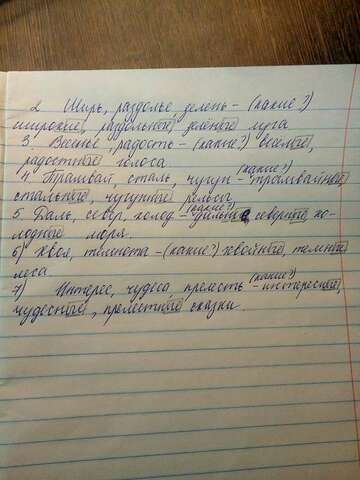 2. Ширь, раздолье зелень - (какие?)
широкие, раздольные, зелёные луга
3. Веселье, радость - (какие?) весёлые,
радостные голоса
4. Трамвай, сталь, чугун - (какие?) трамвайные,
стальные, чугунные рельсы
5. Даль, север, холод - (какие?) дальние северные хо-
лодные моря.
6) Хвоя, темнота - (какие?) хвойные, темные
леса
7) Интерес, чудеса, прелесть - (какие?) интересные,
чудесные, прелестные сказки.